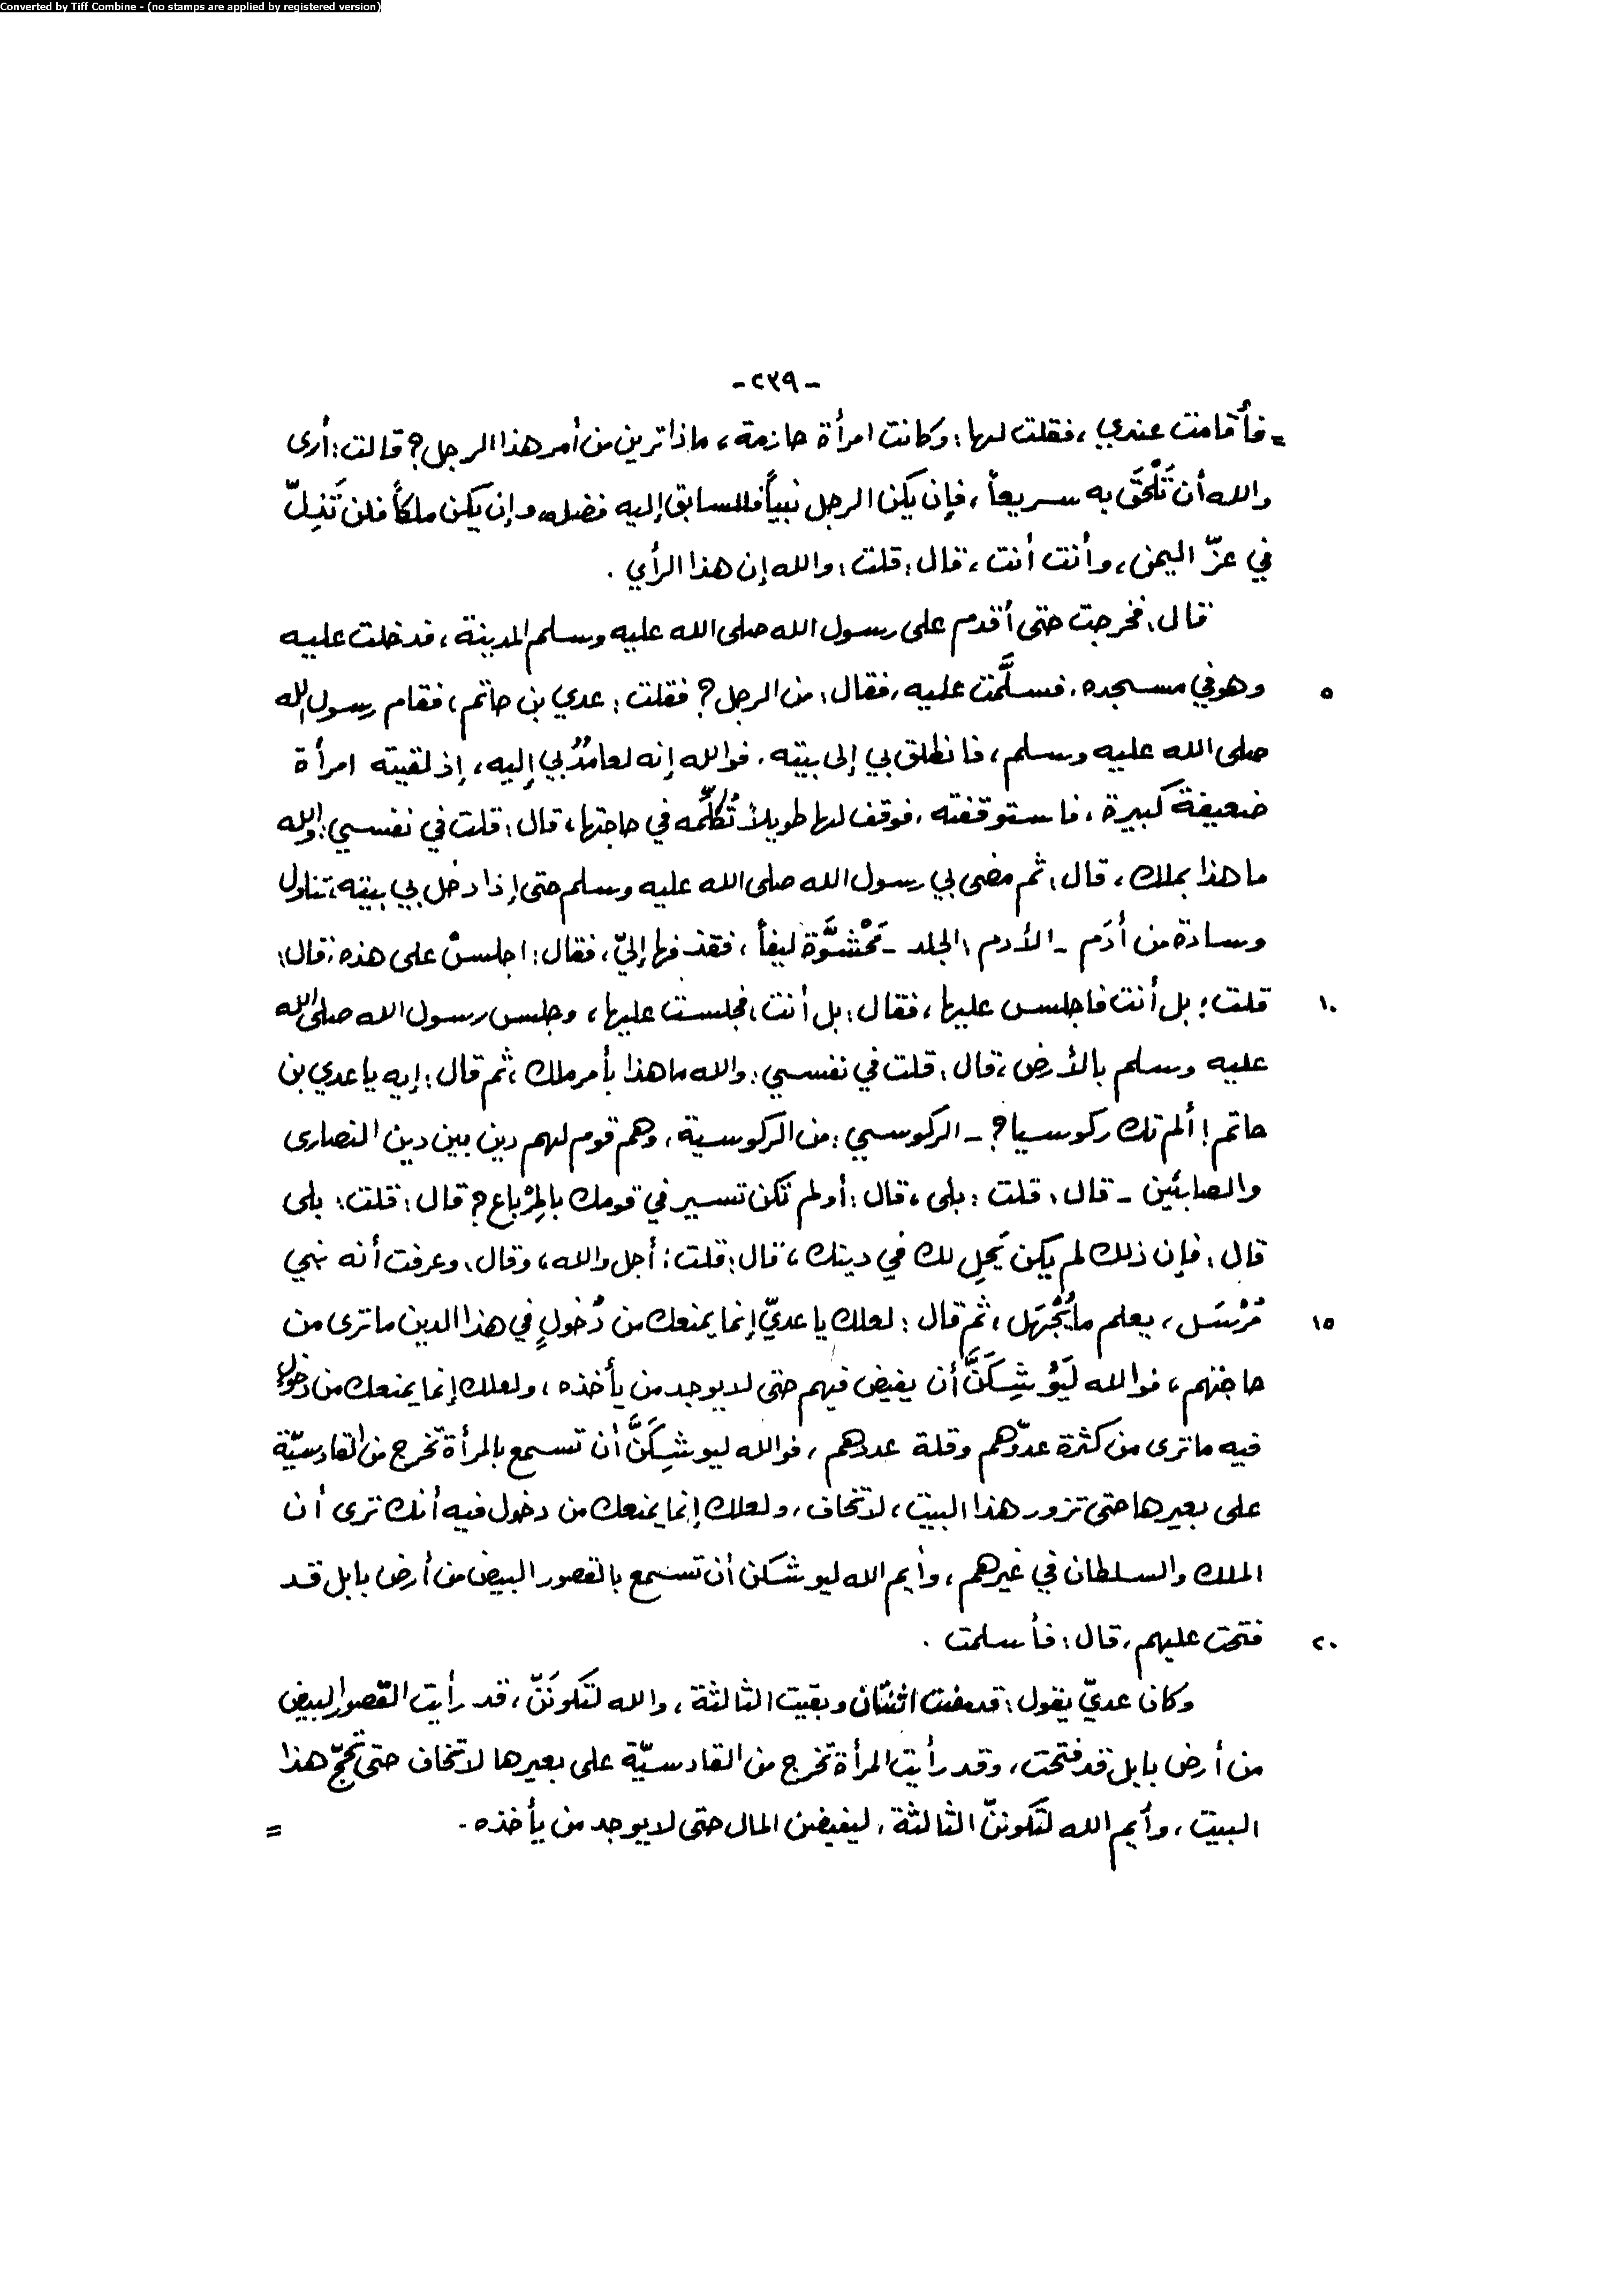 Converted by Tiff Combine - (no stamps are applied by registered version)
-٢٣٩-
= فأقامت عندي، فقلت لها: وكانت امرأة حازمة، ماذا ترين من أمر هذا الرجل؟ قالت: أرى
والله أن تَلْحَقَ به سريعاً، فإن يكن الرجل نبياً فللسابق إليه فضله، وإن يكن ملكاً فلن تَذِلّ
في عزّ اليمن، وأنت أنت، قال: قلت: والله إن هذا الرأي.
قال: فخرجت حتى أقدم على رسول الله صلى الله عليه وسلم المدينة، فدخلت عليه
٥ وهو في مسجده، فسلَّمت عليه، فقال: من الرجل؟ فقلت: عدي بن حاتم، فقام رسول الله
صلى الله عليه وسلم، فانطلق بي إلى بيته، فوالله إنه لعامدٌ بي إليه، إذ لقيته امرأة
ضعيفة كبيرة، فاستوقفته، فوقف لها طويلاً تُكلِّمه في حاجتها، قال: قلت في نفسي: والله
ما هذا بملك، قال: ثم مضى بي رسول الله صلى الله عليه وسلم حتى إذا دخل بي بيته، تناول
وسادة من أدَم - الأدم: الجلد - مَحْشوَّة ليفاً، فقذفها إليّ، فقال: اجلسْ على هذه، قال:
١٠ قلت: بل أنت فاجلس عليها، فقال: بل أنت، فجلست عليها، وجلس رسول الله صلى الله
عليه وسلم بالأرض، قال: قلت في نفسي: والله ما هذا بأمر ملك، ثم قال: إيه يا عدي بن
حاتم! ألم تك ركوسيا؟ - الركوسي: من الركوسية، وهم قوم لهم دين بين دين النصارى
والصابئين - قال: قلت: بلى، قال: أولم تكن تسير في قومك بالمِرْباع؟ قال: قلت: بلى
قال: فإن ذلك لم يكن يَحِل لك في دينك، قال: قلت: أجل والله، وقال: وعرفت أنه نبي
١٥ مُرْسَل، يعلم ما يُجْهَل، ثم قال: لعلك يا عديّ إنما يمنعك من دُخولٍ في هذا الدين ما ترى من
حاجتهم، فوالله لَيُوشِكَنَّ أن يفيض فيهم حتى لا يوجد من يأخذه، ولعلك إنما يمنعك من دخولٍ
فيه ما ترى من كثرة عدوّهم وقلة عددهم، فوالله ليوشِكَنَّ أن تسمع بالمرأة تخرج من القادسيّة
على بعيرها حتى تزور هذا البيت، لا تخاف، ولعلك إنما يمنعك من دخول فيه أنك ترى أن
الملك والسلطان في غيرهم، وأيم الله ليوشكن أن تسمع بالقصور البيض من أرض بابل قد
٢٠ فتحت عليهم، قال: فأسلمت.
وكان عديّ يقول: قد مضت اثنتان وبقيت الثالثة، والله لتَكونَنّ، قد رأيت القصور البيض
من أرض بابل قد فتحت، وقد رأيت المرأة تخرج من القادسيّة على بعيرها لا تخاف حتى تحجّ هذا
البيت، وأيم الله لتَكوننّ الثالثة، ليفيضن المال حتى لا يوجد من يأخذه. =